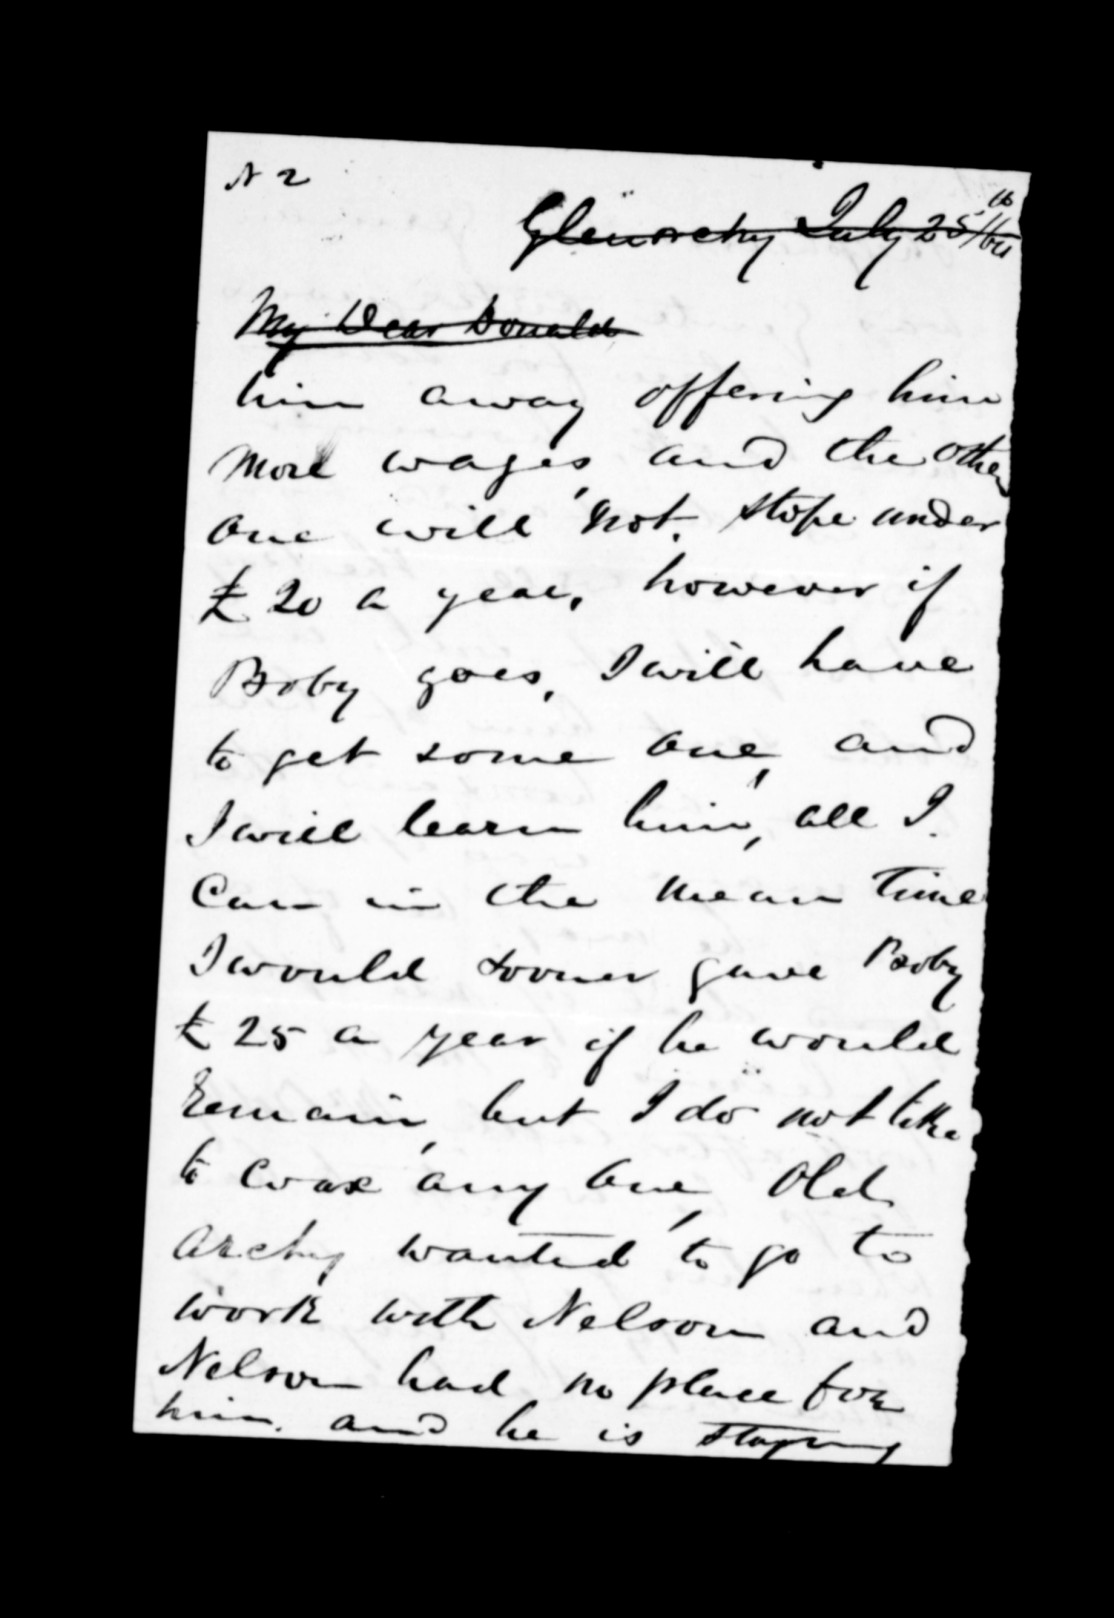 N 2
Glenorchy July 25th/64
My Dear Donald
him away offering him
more wages, and the other
one will not. stope under
£ 20 a year, however if
Boby goes, I will have
to get some one, and
I will learn him, all I.
Can in the mean time
I would sooner gave Boby
£ 25 a year if he would
remain, but I do not like
to coax any one, Old
Archy wanted to go to
work with Nelson and
Nelson had no place for
him. and he is stoping